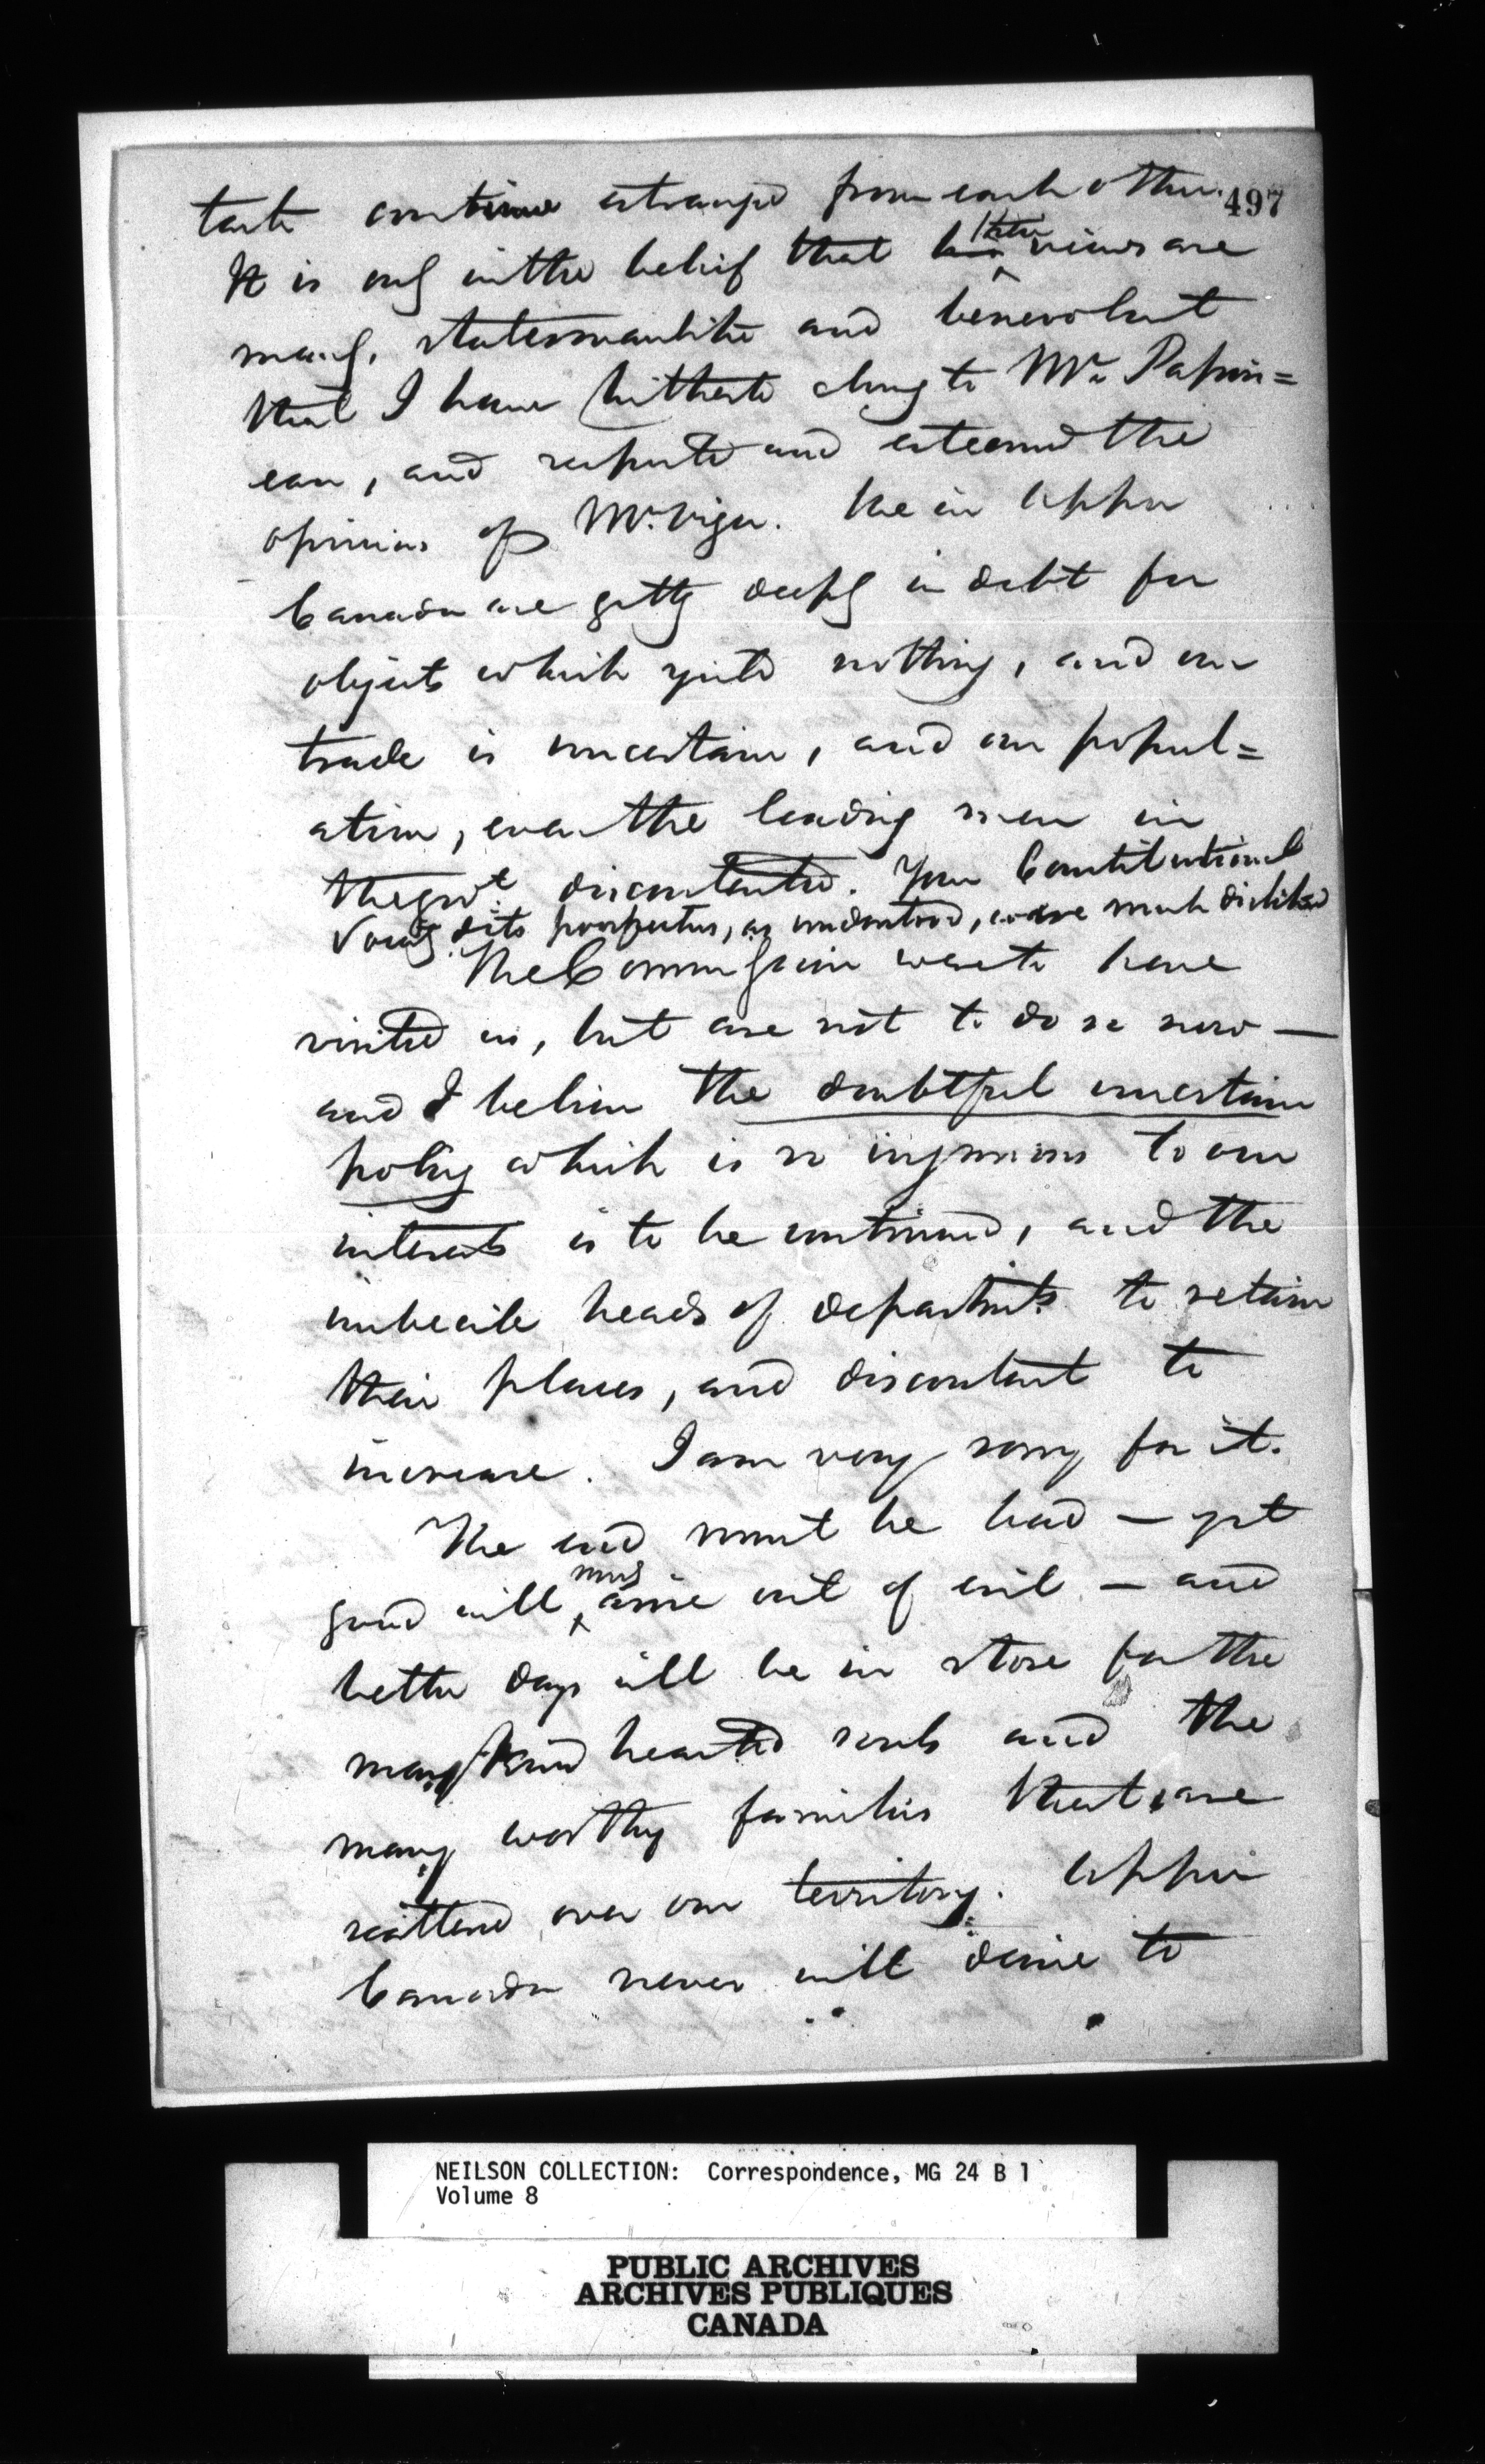 continue estranged from each other. 497
It is only in the belief that his their views are
manly, statesmanlike and benevolent
that I have hitherto clung to Mr. Papin=
eau, and respected and esteemed the
opinions of Mr. Viger. We in Upper
Canada are getting deeply in debt for
objects which yield nothing, and our
trade is uncertain, and our popul=
ation, even the leading men in
the govt. discontented. Your Constitutional
Society & its prospectus, as understood, were much disliked
The Commission were to have
visited us, but are not to do so now —
and I believe the doubtful uncertain
policy which is so injurious to our
interests is to be continued, and the
imbecile heads of departmts. to retain
their places, and discontent to
increase. I am very sorry for it.
The end must be bad — yet
good will arise out of evil — and
better days will be in store for the
many kind hearted souls and the
many worthy families that are
scattered over our territory. Upper
Canada never will desire to
NEILSON COLLECTION: Correspondence, MG 24 B 1
Volume 8
PUBLIC ARCHIVES
ARCHIVES PUBLIQUES
CANADA